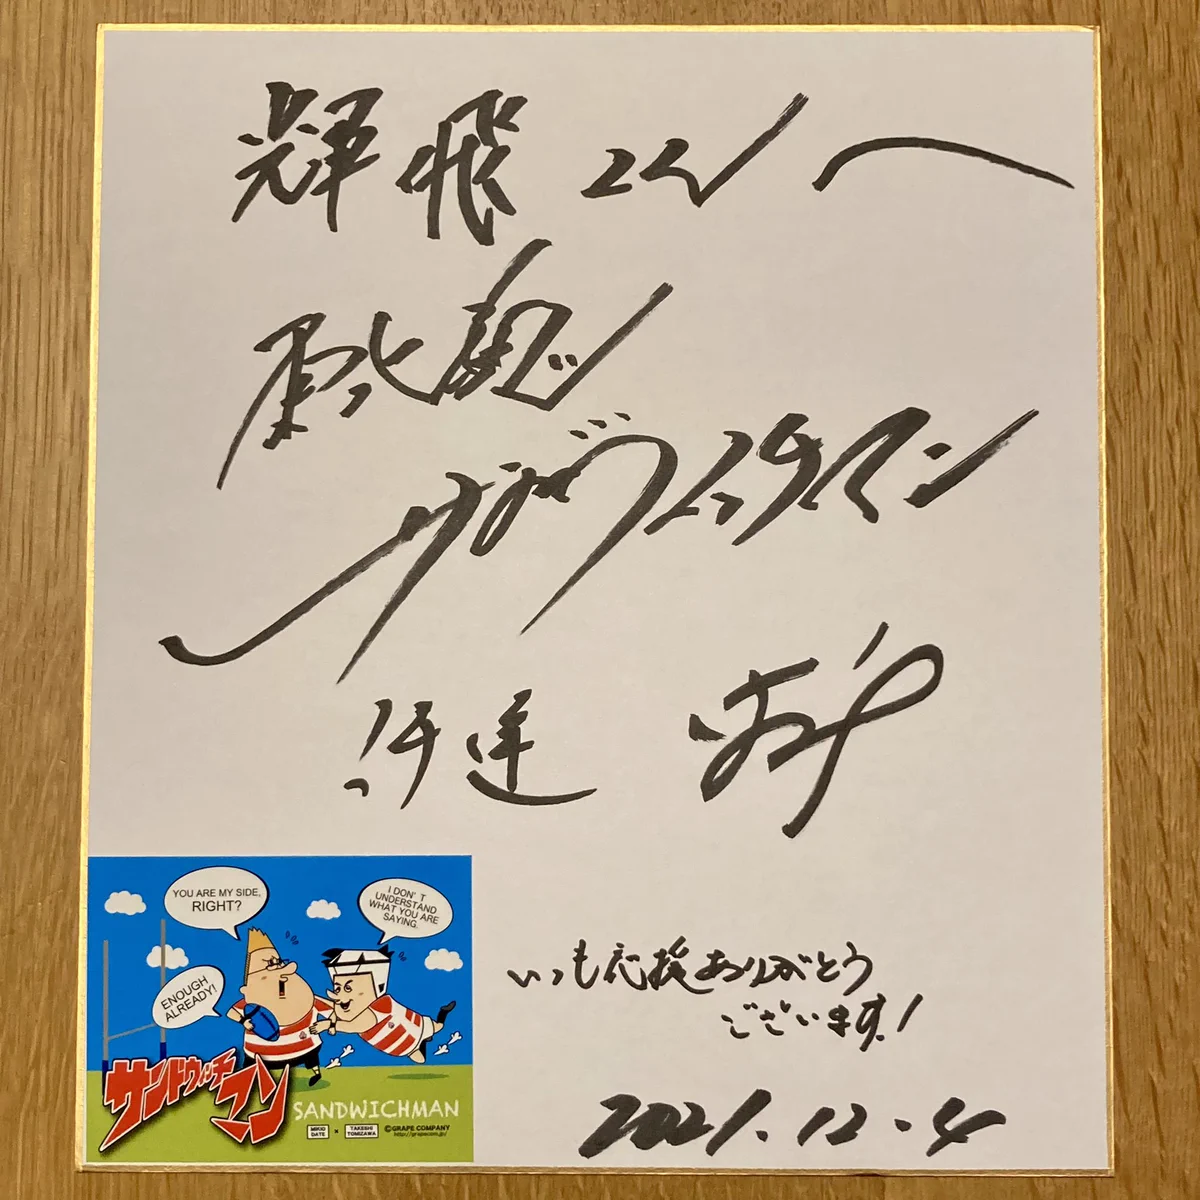 輝飛くんへ
東北魂
サンドウィッチマン
伊達
いつも応援ありがとう
ございます!
2021.12.4
YOU ARE MY SIDE,
RIGHT?
I DON'T
UNDERSTAND
WHAT YOU ARE
SAYING.
ENOUGH
ALREADY!
サンドウィッチ
マン
SANDWICHMAN
MIKIO
DATE
×
TAKESHI
TOMIZAWA
©GRAPE COMPANY
http://grapecom.jp/